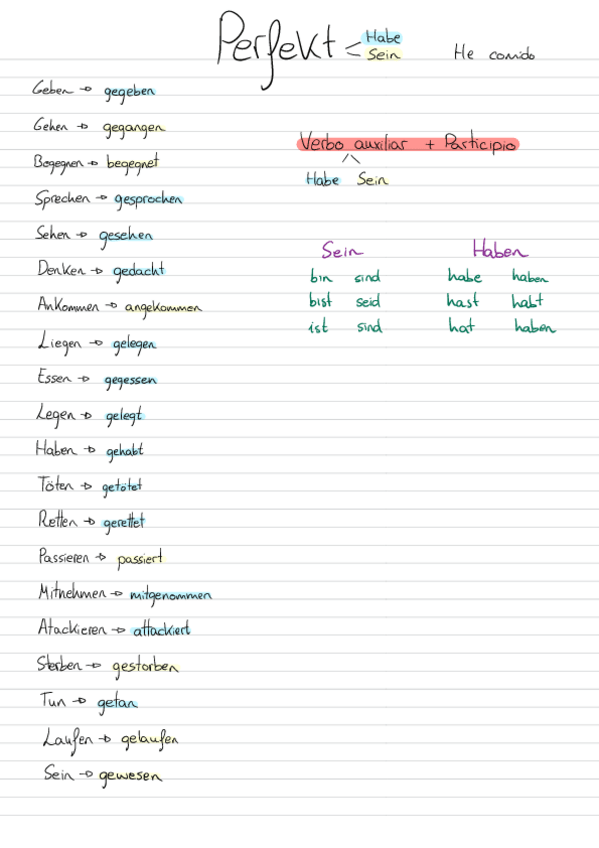 Perfekt < Habe
Sein
He comido
Geben → gegeben
Gehen → gegangen
Begegnen → begegnet
Sprechen → gesprochen
Sehen → gesehen
Denken → gedacht
Ankommen → angekommen
Liegen → gelegen
Essen → gegessen
Legen → gelegt
Haben → gehabt
Töten → getötet
Retten → gerettet
Passieren → passiert
Mitnehmen → mitgenommen
Atackieren → attackiert
Sterben → gestorben
Tun → getan
Laufen → gelaufen
Sein → gewesen
Verbo auxiliar + Participio
Habe Sein
Sein Haben
bin sind habe haben
bist seid hast habt
ist sind hat haben